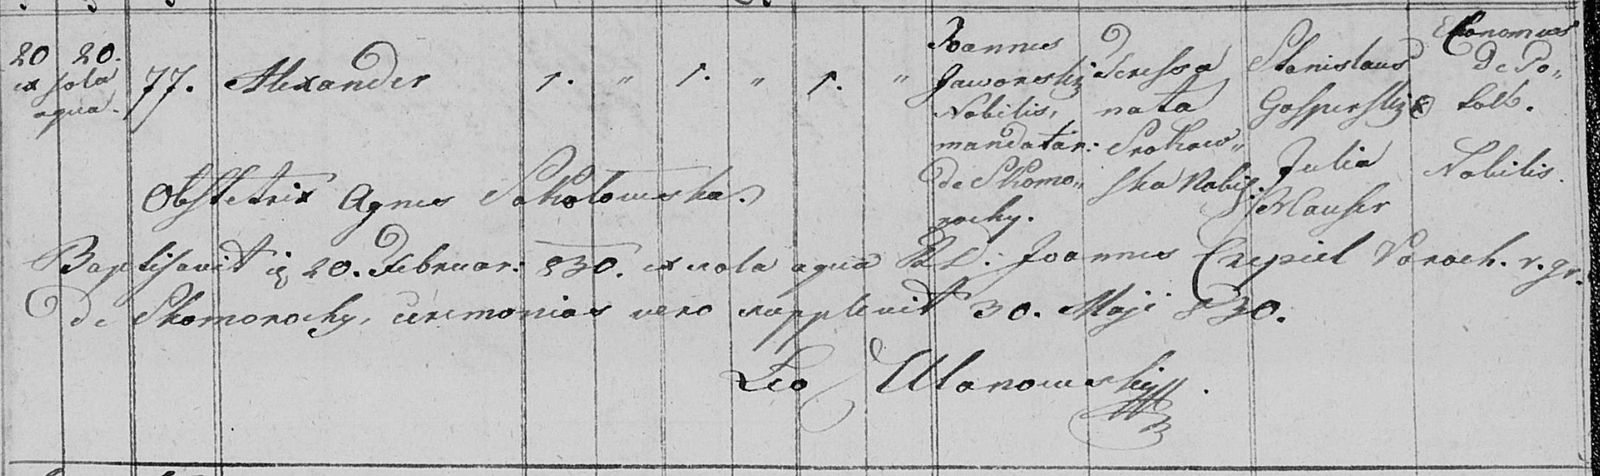 20 20.
ex sola
aqua.
77. Alexander 1. " 1. " 1. "
Joannes
Jaworski
Nobilis,
mandatar:
de Skomo„
rochy.
Teressa
nata
Srokow„
ska Nobil.
Stanislaus
Gosperski &
Julia
Mauser
Economus
de Po„
tok.
Nobilis.
Obstetrix Agnes Sokołowska.
Baptisavit 20. Februar: 830. ex sola aqua Joannes Czepiel Paroch. r. gr.
de Skomorochy, ceremonias vero supplevit 30. Maji 830.
Leo Ulanowski